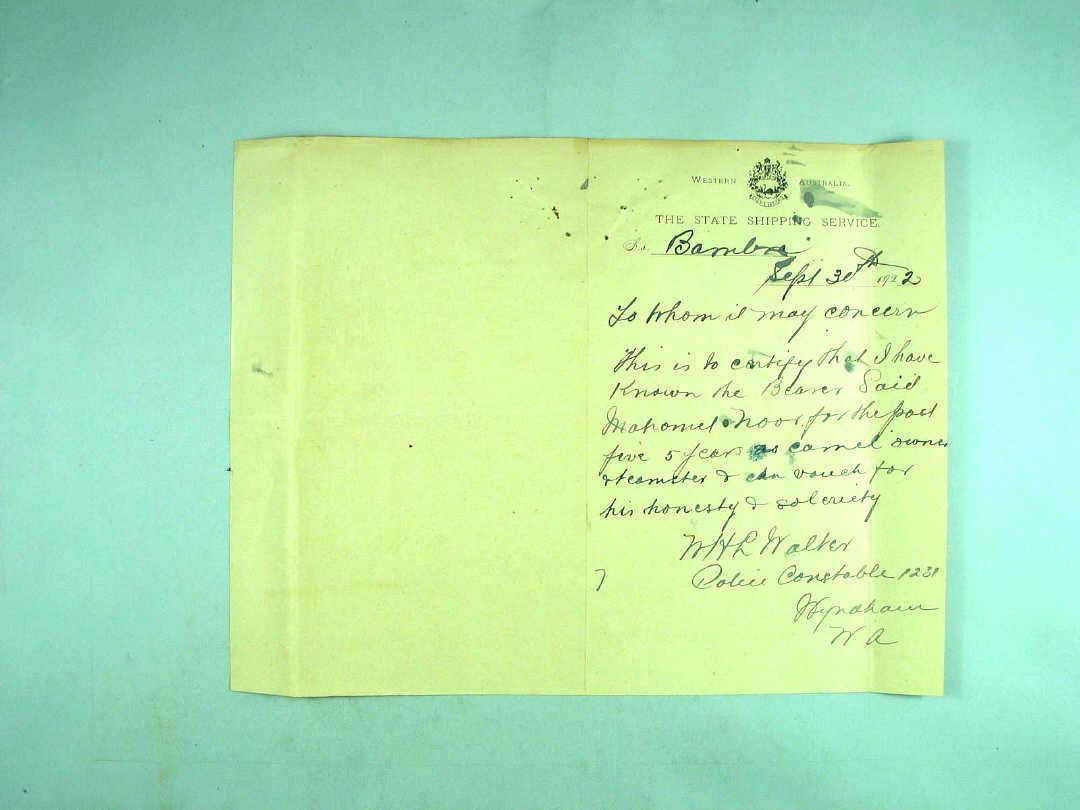 WESTERN AUSTRALIA.
THE STATE SHIPPING SERVICE.
S.S. Bambra
Sept 30th 1922
To Whom it may concern
This is to certify that I have
Known the Bearer Said
Mahomet Noor for the past
five 5 years as camel owner
& teamster & can vouch for
his honesty & sobriety
W H L Walker
Police Constable 1231
Wyndham
W A
7